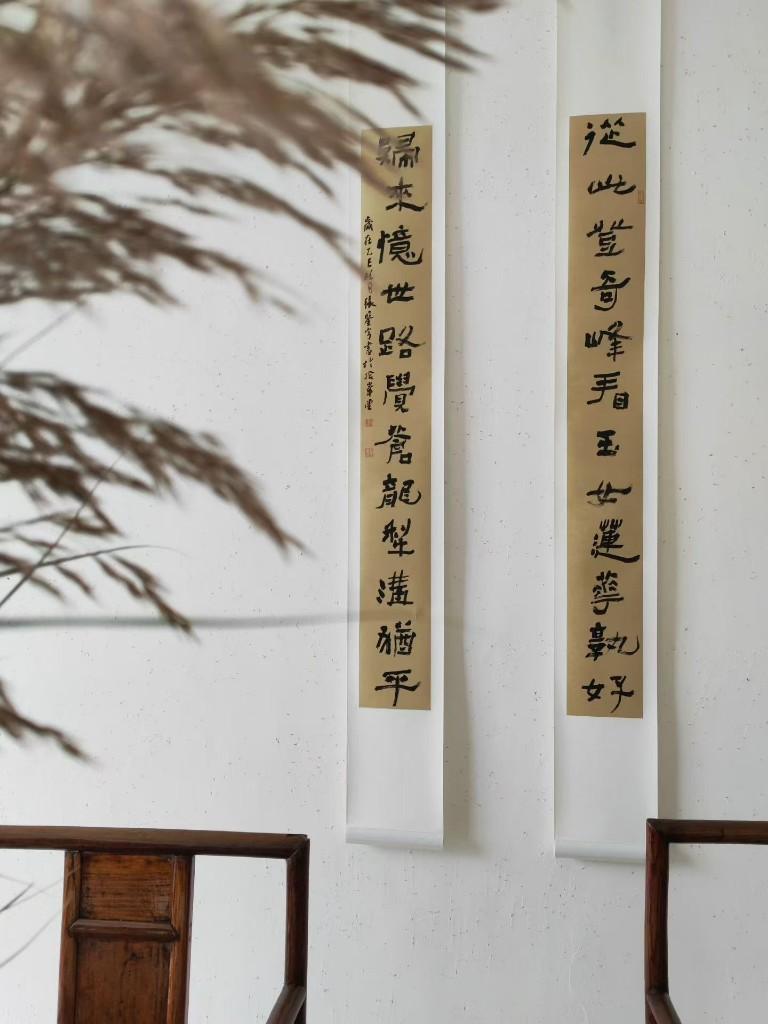 從此登奇峰看玉女蓮華孰好
歸來憶世路覺蒼龍犁溝猶平
歲在乙巳 張 書於 堂